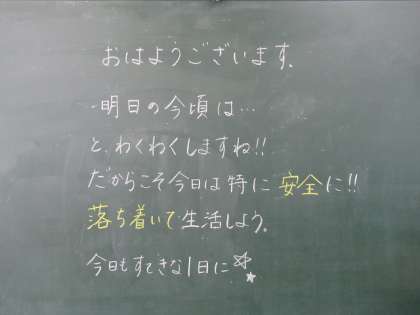 おはようございます。
・明日の今頃は…
と、わくわくしますね!!
だからこそ今日は特に安全に!!
落ち着いて生活しよう。
今日もすてきな1日に☆★